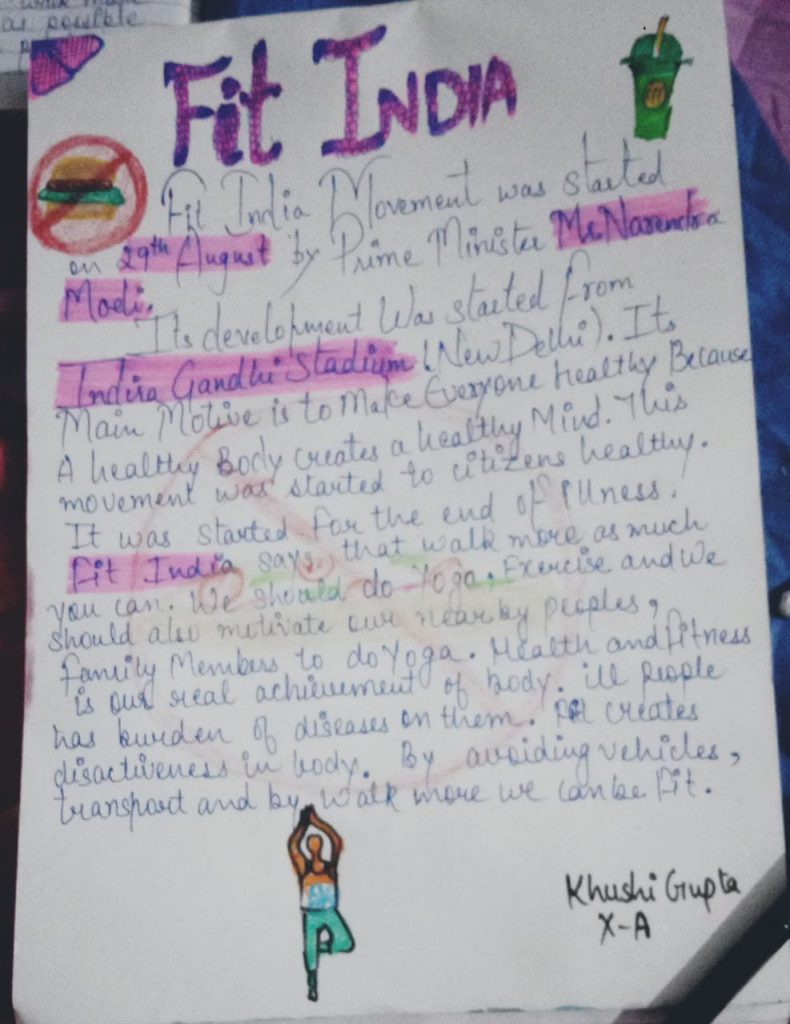 walk
as possible
Fit INDIA
Fit India Movement was started
on 29th August by Prime Minister Mr. Narendra
Modi.
Its development Was started from
Indira Gandhi Stadium (New Delhi). Its
Main Motive is to Make Everyone healthy Because
A healthy Body creates a healthy Mind. This
movement was started to citizens healthy.
It was started for the end of Illness.
Fit India says that walk more as much
you can. We should do Yoga. Exercise and We
should also motivate our near by peoples,
family Members to do Yoga. Health and fitness
is our real achievement of body. ill people
has burden of diseases on them. It creates
disactiveness in body. By avoiding vehicles,
transport and by walk more we can be fit.
Khushi Gupta
X-A